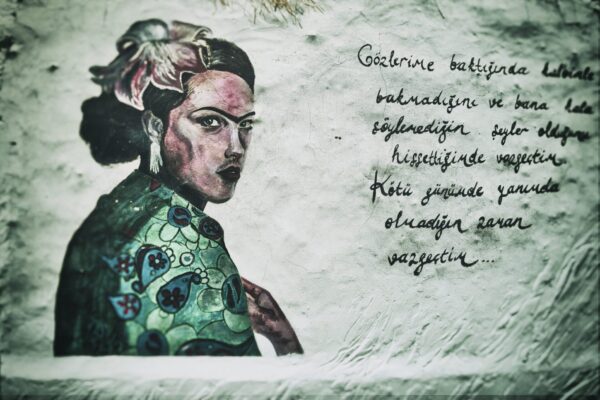 Gözlerime baktığında kalbinle
bakmadığını ve bana hala
söylemediğin şeyler olduğunu
hissettiğimde vazgeçtim
Kötü günümde yanımda
olmadığın zaman
vazgeçtim...